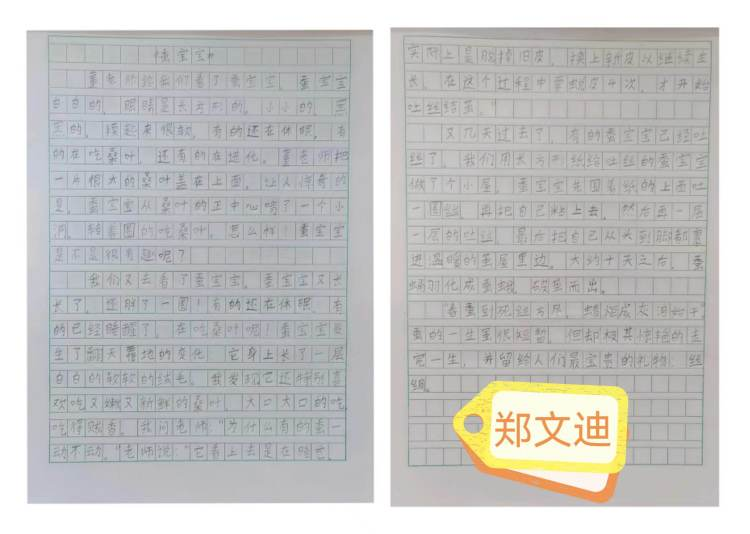 《蚕宝宝》
董老师给我们看了蚕宝宝。蚕宝宝
白白的，眼睛是长方形的，小小的，宝
宝的，摸起来很软。有的还在休眠，有
的在吃桑叶，还有的在进化。董老师把
一片很大的桑叶盖在上面，让人惊奇的
是，蚕宝宝从桑叶的正中心啃了一个小
洞，转着圈的吃桑叶。怎么样！蚕宝宝
是不是很有趣呢？
我们又去看了蚕宝宝。蚕宝宝又长
长了，还胖了一圈！有的还在休眠，有
的已经睡醒了，在吃桑叶呢！蚕宝宝发
生了翻天覆地的变化，它身上长了一层
白白的软软的绒毛。我发现它还特别喜
欢吃又嫩又新鲜的桑叶，大口大口的吃，
吃得贼香。我问老师：“为什么有的蚕一
动不动。”老师说：“它看上去是在睡觉，
实际上是脱掉旧皮，换上新皮以继续生
长。在这个过程中要蜕皮4次，才开始
吐丝结茧。”
又几天过去了，有的蚕宝宝已经吐
丝了。我们用长方形纸给吐丝的蚕宝宝
做了个小屋。蚕宝宝先围着纸的上面吐
一圈丝，再把自己粘上去，然后再一层
一层的吐丝，最后把自己从头到脚都裹
进温暖的茧屋里边。大约十天之后，蚕
蛹羽化成蚕蛾，破茧而出。
“春蚕到死丝方尽，蜡炬成灰泪始干”
蚕的一生虽很短暂，但却极其惊艳的走
完一生，并留给人们最宝贵的礼物：丝
绸。
郑文迪